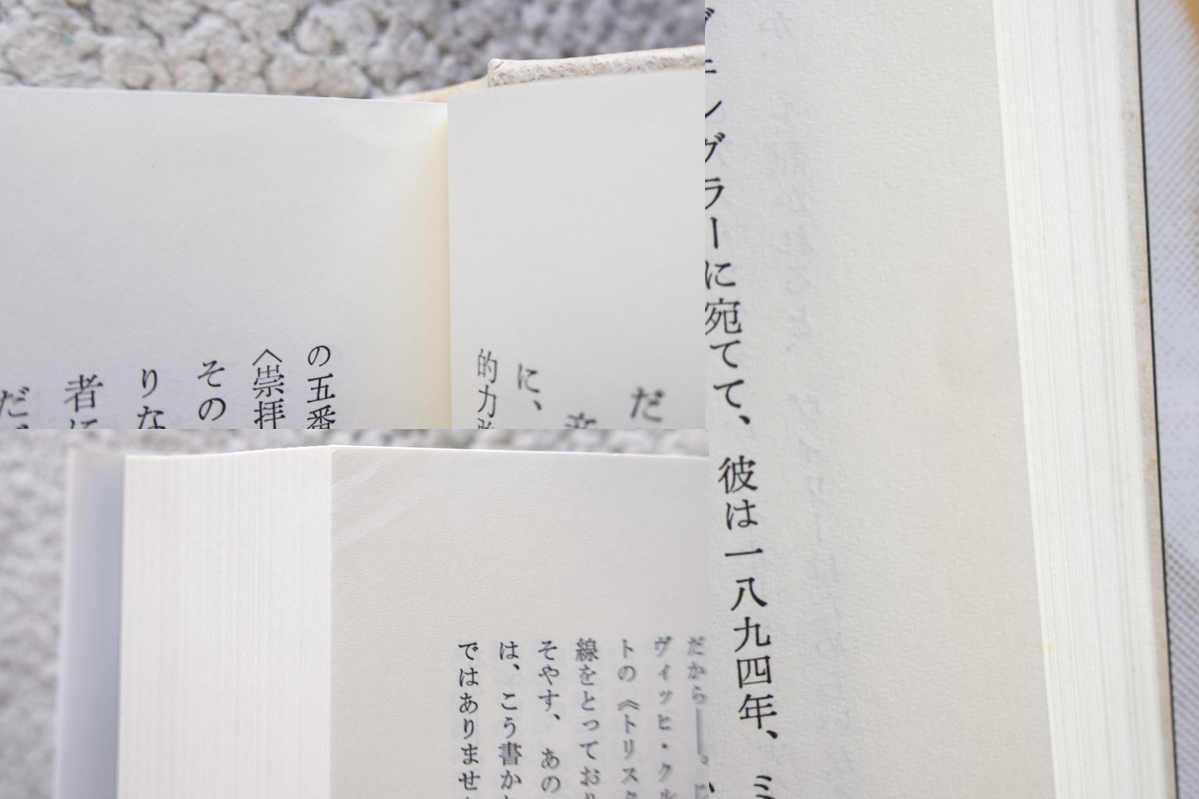 だ
に、
的力
の五番
〈崇拝
その
りな
者に
だ、
だから――。
ヴィッヒ・クル
トの《トリスタ
線をとっており
そやす、あの
は、こう書か
ではありませ
ングラーに宛てて、彼は一八九四年、ミ